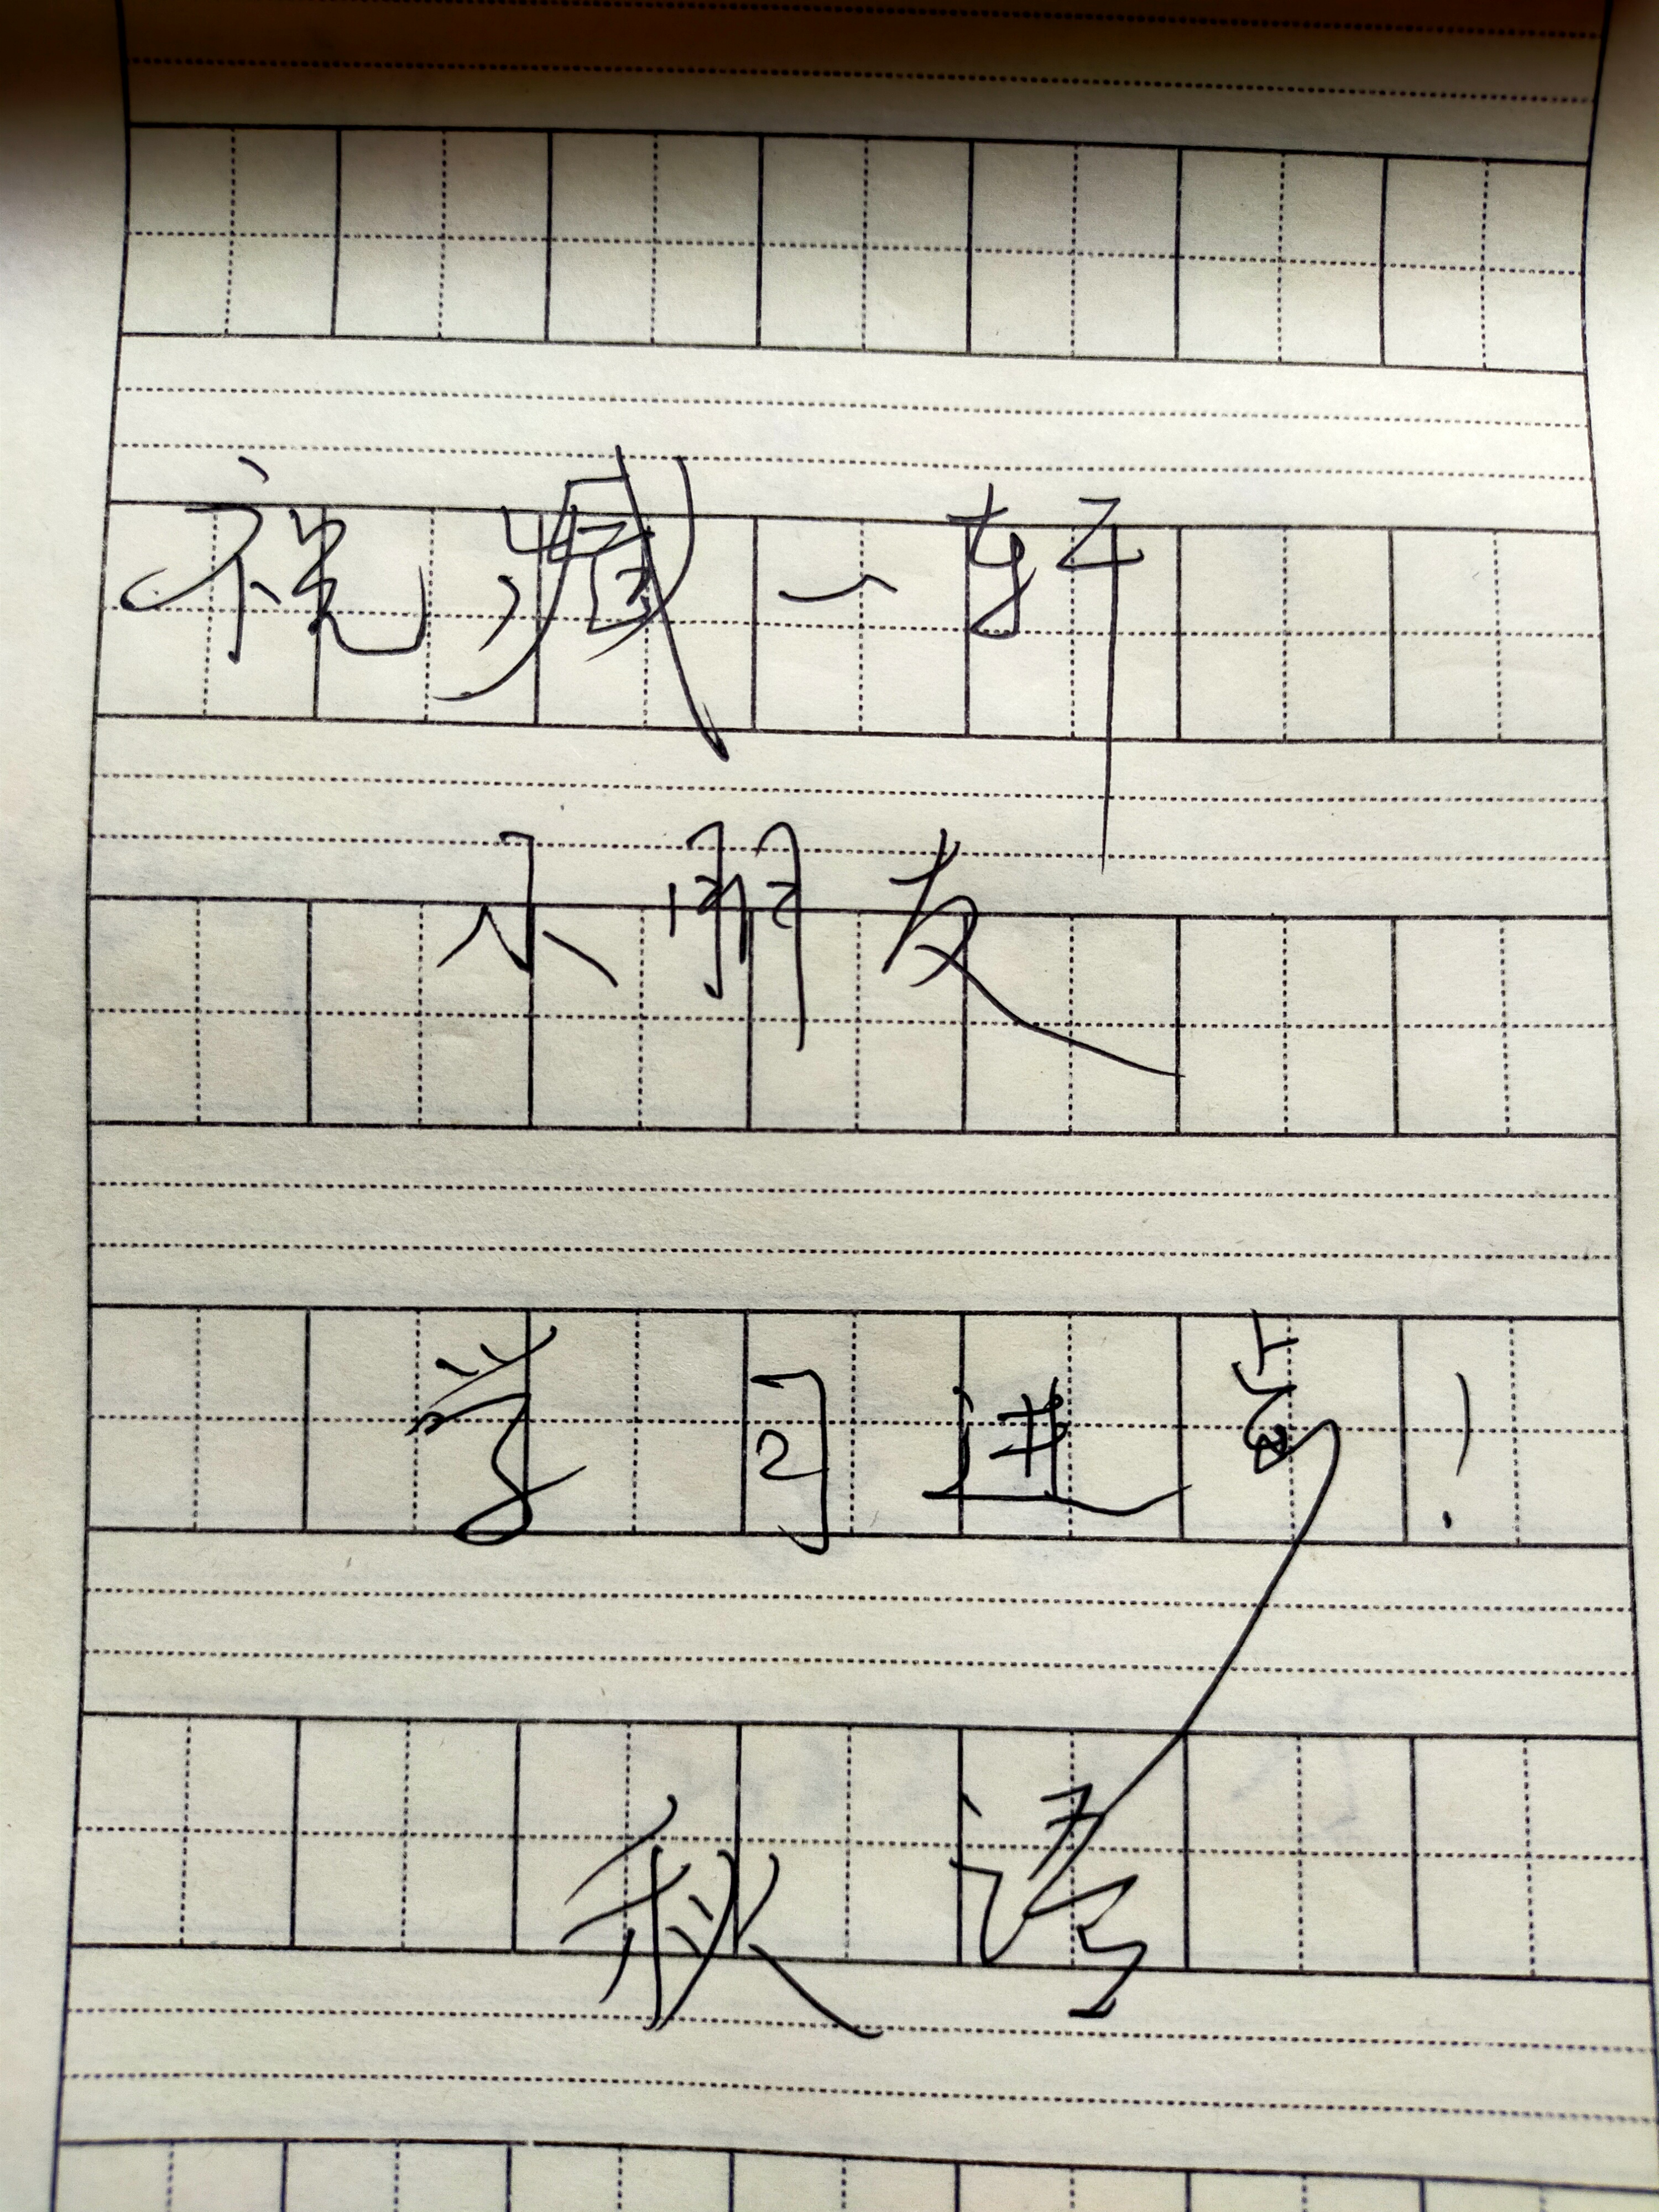 祝臧一轩
小朋友
学习进步!
秋语